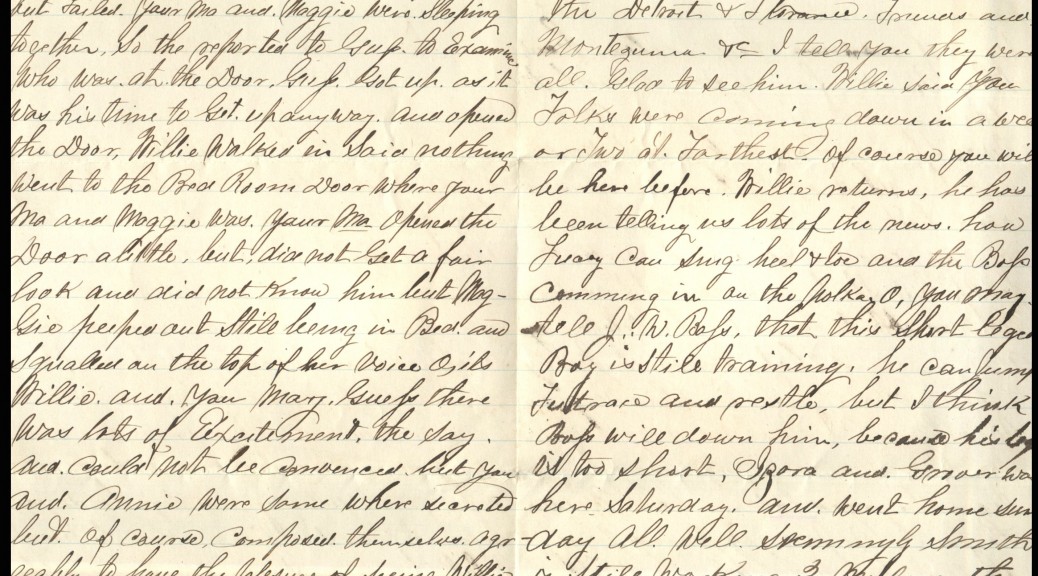 but failed. Your Ma and. Maggie were. Sleeping
together, So the reported to Guss. to Examine
Who was. at. the Door. Guss. Got up. as it
was his time to Get. up any way. and opened
the Door, Willie Walked in Said nothing
went to the Bed Room Door where your
Ma and Maggie was. your Ma Opened the
Door a little, but, did not Get a fair
look and did not Know him but Mag-
Gie peeped out Still being in Bed. and
Squalled on the top of her voice
Willie. and. You Mary. Guess there
was lots of Excitement, the Say.
and. could not be convenced. but you
and. Annie were some where secreted
but. of course, Composed. themselves. agr-
eably to have the plesure of seing Willie
the Detroit & Florance. Friends and
Montezuma &c I tell you they were
all. Glad to see him. Willie said You
Folks were coming down in a
or Two at. Farthest. of course you will
be here before. Willie returns, he has
been telling us lots of the news. how
can Sing heel & toe and the Boss
Comming in on the polka, O, you may
tell J. W. Boss, that this Short leged
Boy is Still training. he can jump
foot race and restle, but I think
Boss will down him, because his leg
is too short, Izora and. Grover was
here Saturday. and. went home sun
day All Well. seemingly Smith
is still